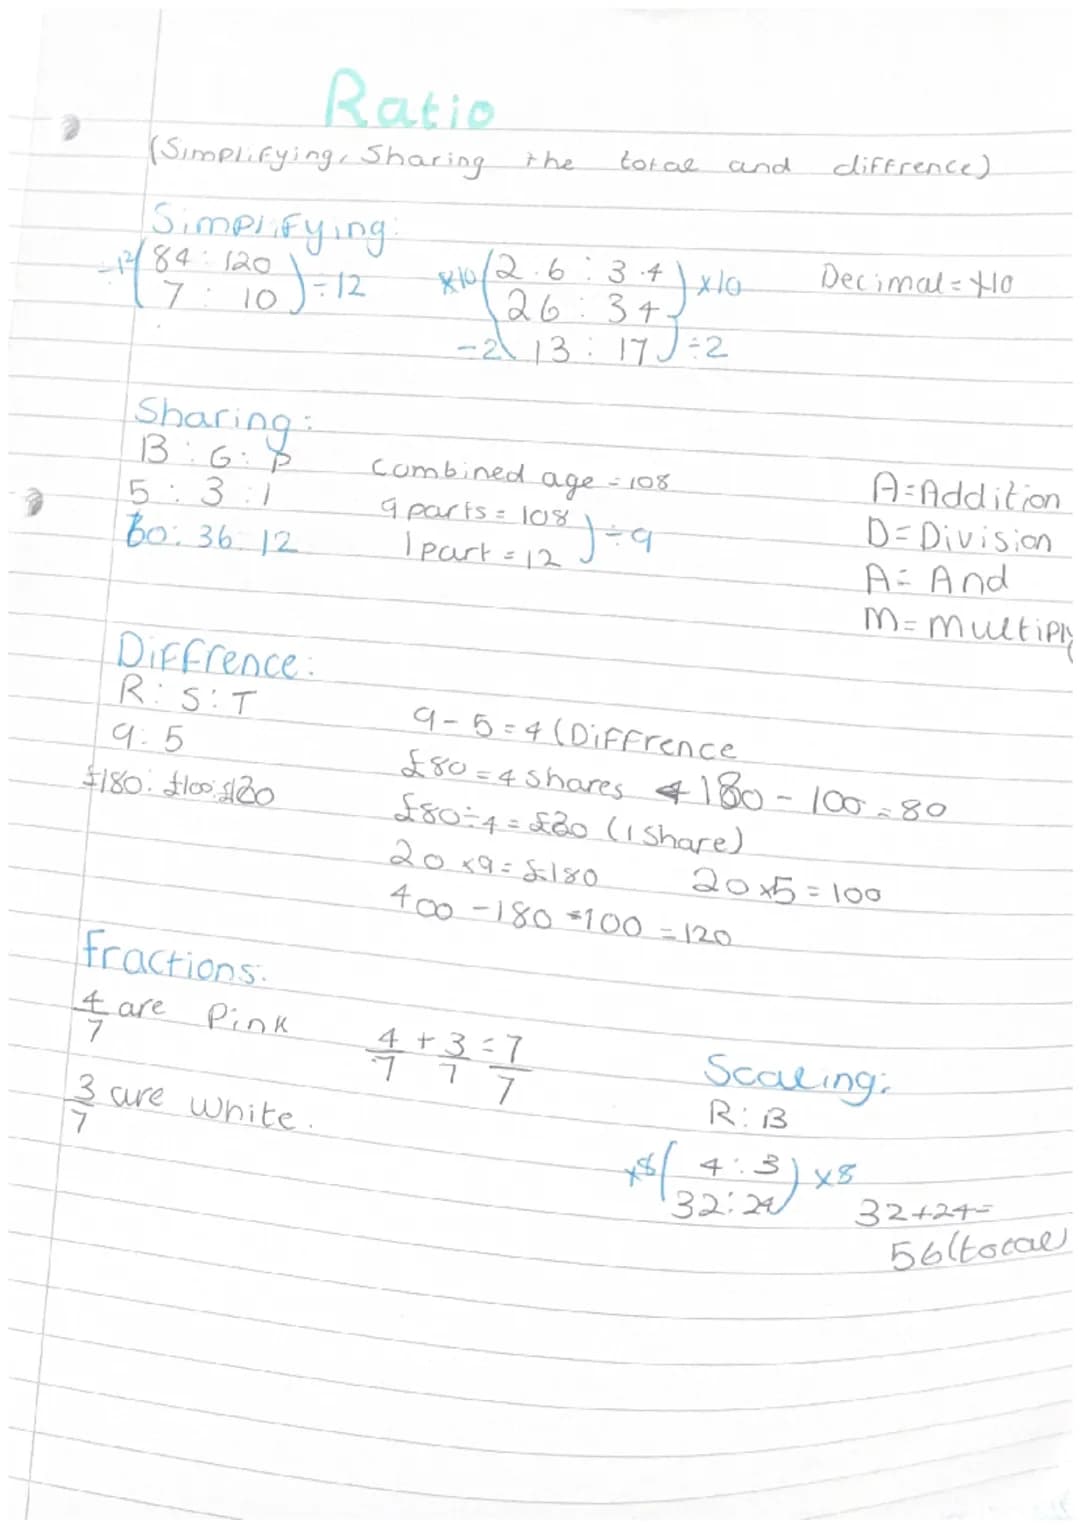 Ratio
(Simplifying, Sharing the total and diffrence)
Simplifying:
÷12 ( 84 : 120 ) ÷12
7 : 10
x10 ( 2.6 : 3.4 ) x10
26 : 34
-2 ( 13 : 17 ) ÷2
Decimal = x10
Sharing:
B : G : P
5 : 3 : 1
60 : 36 : 12
Combined age = 108
9 parts = 108
1 part = 12 ) ÷9
A = Addition
D = Division
A = And
M = Multiply
Diffrence:
R : S : T
9 : 5
£180 : £100 : £120
9 - 5 = 4 (Diffrence
£80 = 4 shares 180 - 100 = 80
£80 ÷ 4 = £20 (1 Share)
20 x 9 = £180 20 x 5 = 100
400 - 180 - 100 = 120
Fractions:
4/7 are Pink
3/7 are White.
4/7 + 3/7 = 7/7
Scaling:
R : B
x8 ( 4 : 3 ) x8
32 : 24
32 + 24 =
56 (total)